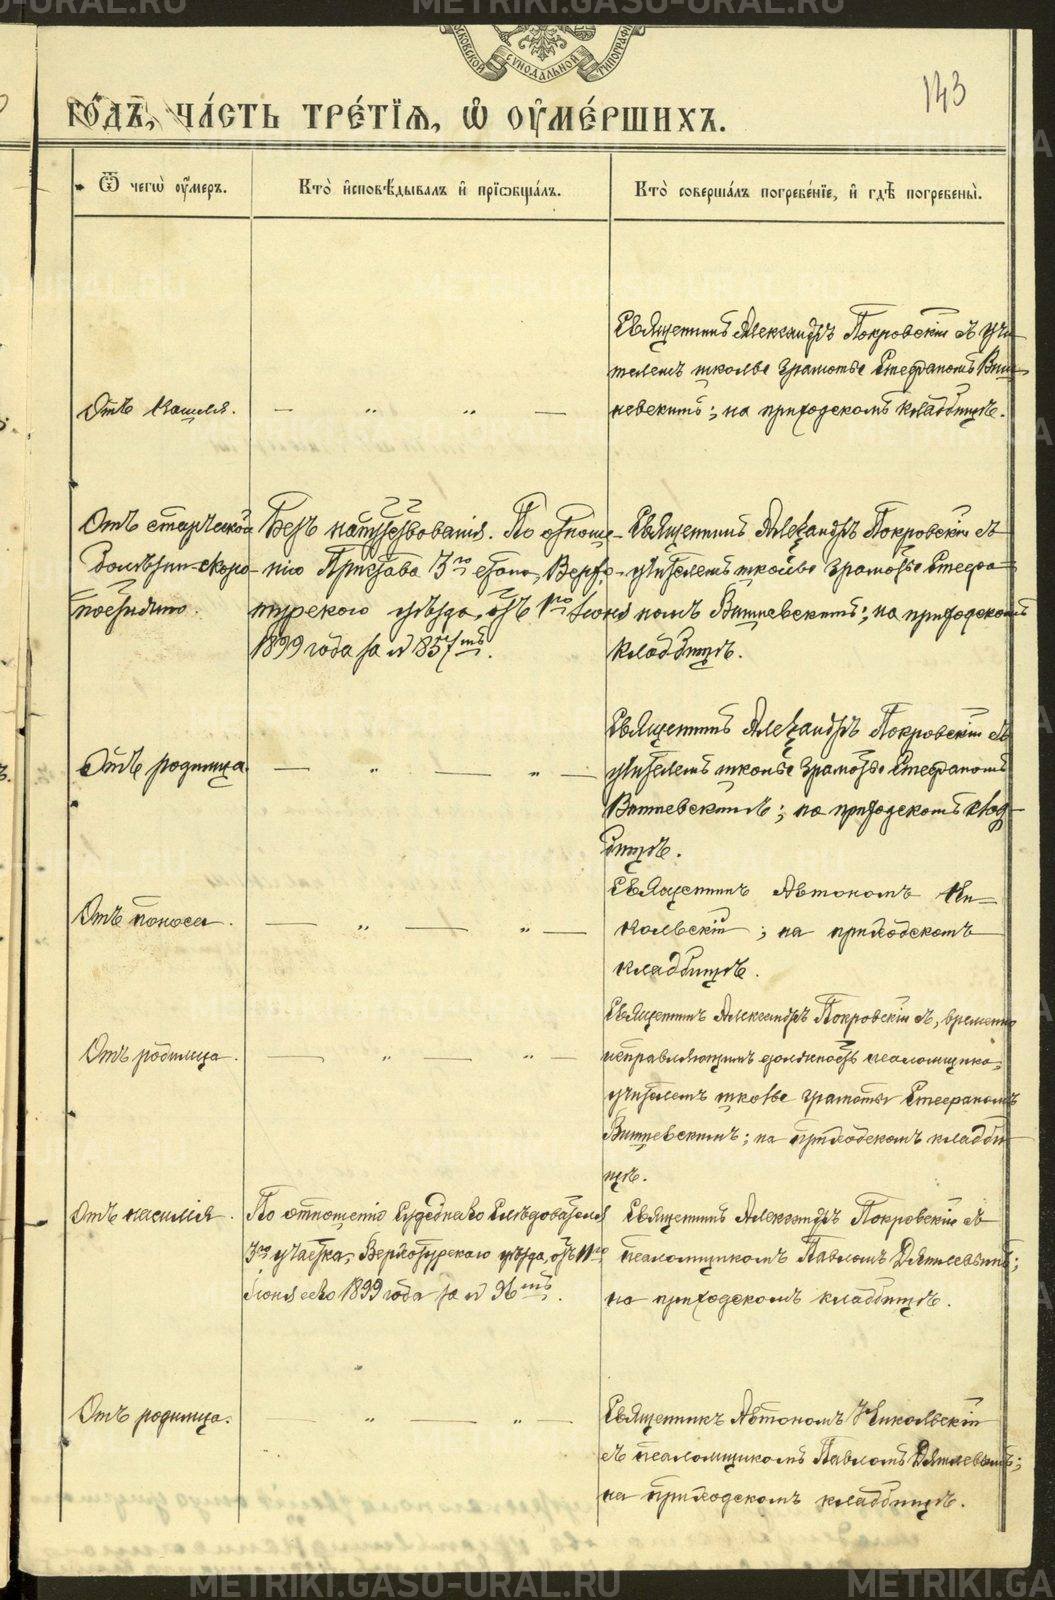 METRIKI.GASO-URAL.RU
МОСКОВСКОЙ СѴНОДАЛЬНОЙ ТИПОГРАФІИ
143
го́дъ, ча́сть тре́тїѧ, ѡ҆ ᲂу҆ме́ршихъ.
Ѿ чегѡ̀ ᲂу҆́меръ.
Кто̀ и҆сповѣ́дывалъ и҆ прїѡбща́лъ.
Кто̀ соверша́лъ погребе́нїе, и҆ гдѣ̀ погребены̀.
Отъ кашля.
— „ „ —
Священникъ Александръ Покровскій съ учи-
телемъ школы грамоты Стефаномъ Виш-
невскимъ; на приходскомъ кладбищѣ.
Отъ старческой
болѣзни скоро-
постижно.
Безъ напутствованія. По отноше-
нію Пристава 3го стана, Верхо-
турскаго уѣзда, отъ 1го Іюня
1899 года за № 857мъ.
Священникъ Александръ Покровскій съ
учителемъ школы грамоты Стефа-
номъ Вишневскимъ; на приходскомъ
кладбищѣ.
Отъ родимца.
— „ — „ —
Священникъ Александръ Покровскій съ
учителемъ школы грамоты Стефаномъ
Вишневскимъ; на приходскомъ клад-
бищѣ.
Отъ поноса.
— „ — „ —
Священникъ Автономъ Ни-
кольскій; на приходскомъ
кладбищѣ.
Отъ родимца.
— „ — „ —
Священникъ Александръ Покровскій съ, временно
исправляющимъ должность псаломщика,
учителемъ школы грамоты Стефаномъ
Вишневскимъ; на приходскомъ кладби-
щѣ.
Отъ насилія.
По отношенію Судебнаго Слѣдователя
3го участка, Верхотурскаго уѣзда, отъ 11го
Іюня сего 1899 года за № 96мъ.
Священникъ Александръ Покровскій съ
псаломщикомъ Павломъ Дягилевымъ;
на приходскомъ кладбищѣ.
Отъ родимца.
— „ — „ —
Священникъ Автономъ Никольскій
съ псаломщикомъ Павломъ Дягилевымъ;
на приходскомъ кладбищѣ.
METRIKI.GASO-URAL.RU